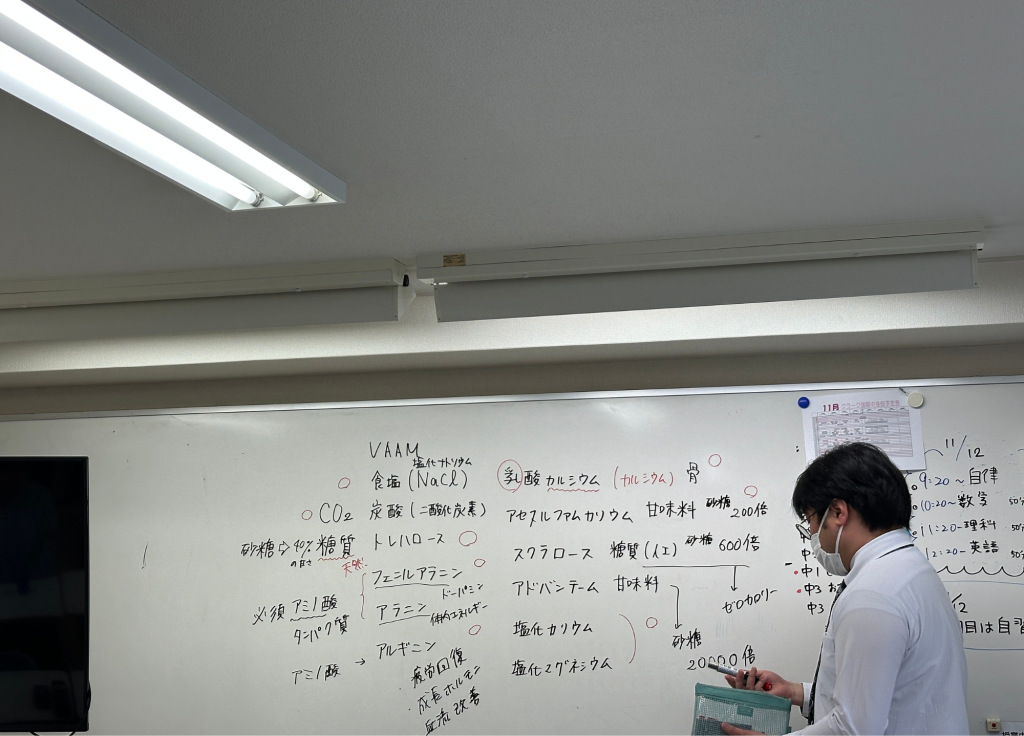 VAAM
塩化ナトリウム
食塩 (NaCl)
CO₂ 炭酸 (二酸化炭素)
砂糖⇨40% 糖質 トレハロース
の甘さ
天然
フェニルアラニン
ドーパミン
必須 アミノ酸 アラニン 体内エネルギー
タンパク質
アミノ酸 → アルギニン
・疲労回復
・成長ホルモン
血流改善
乳酸カルシウム (カルシウム) 骨
アセスルファムカリウム 甘味料 砂糖 200倍
スクラロース 糖質(人工) 砂糖 600倍
アドバンテーム 甘味料 ゼロカロリー
塩化カリウム
砂糖
20000倍
塩化マグネシウム
11月
11/12
9:20~自律
10:20~数学 50分
11:20-理科 50分
12:20-英語 50分
中1
中3
中3
/12
日は自習